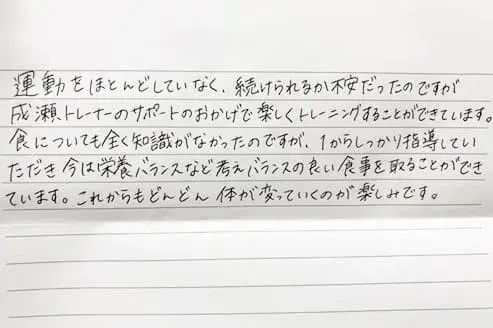 運動をほとんどしていなく、続けられるか不安だったのですが
成瀬トレーナーのサポートのおかげで楽しくトレーニングすることができています。
食についても全く知識がなかったのですが、1からしっかり指導してい
ただき今は栄養バランスなど考えバランスの良い食事を取ることができ
ています。これからもどんどん体が変っていくのが楽しみです。